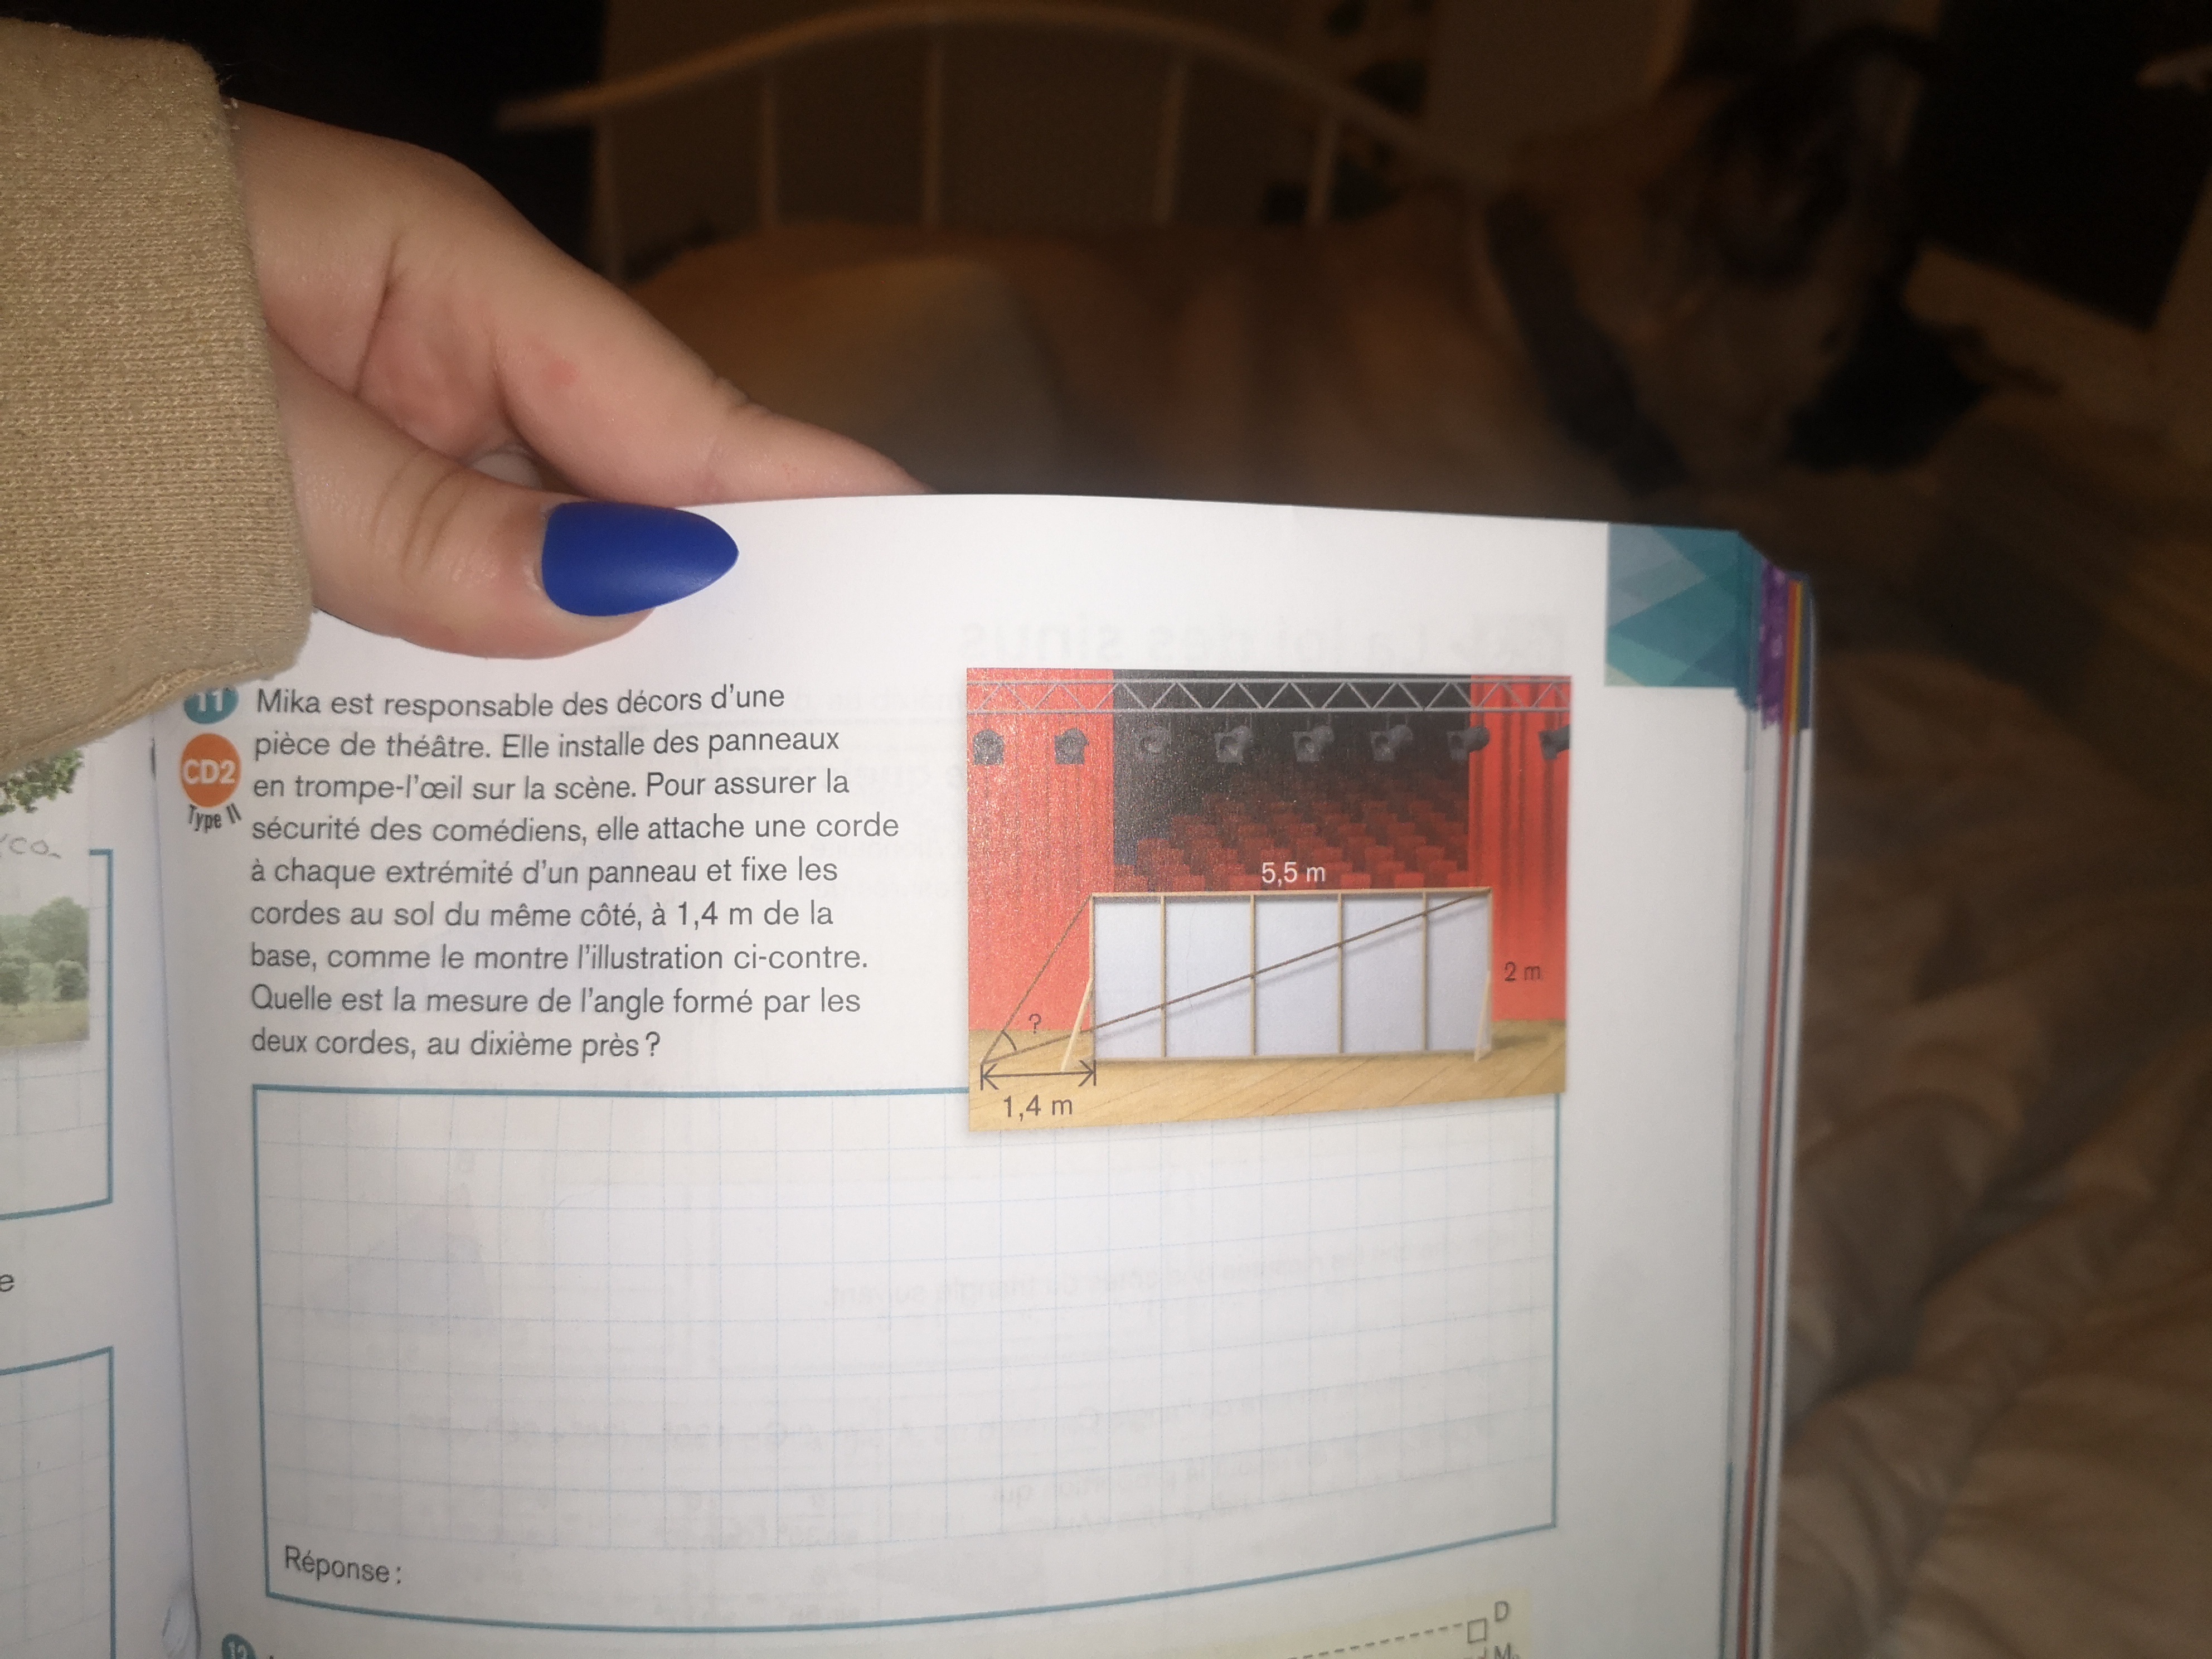 11 Mika est responsable des décors d'une
CD2 pièce de théâtre. Elle installe des panneaux
en trompe-l'œil sur la scène. Pour assurer la
Type II sécurité des comédiens, elle attache une corde
à chaque extrémité d'un panneau et fixe les
cordes au sol du même côté, à 1,4 m de la
base, comme le montre l'illustration ci-contre.
Quelle est la mesure de l'angle formé par les
deux cordes, au dixième près ?
5,5 m
2 m
?
1,4 m
Réponse :
12
D
M
e